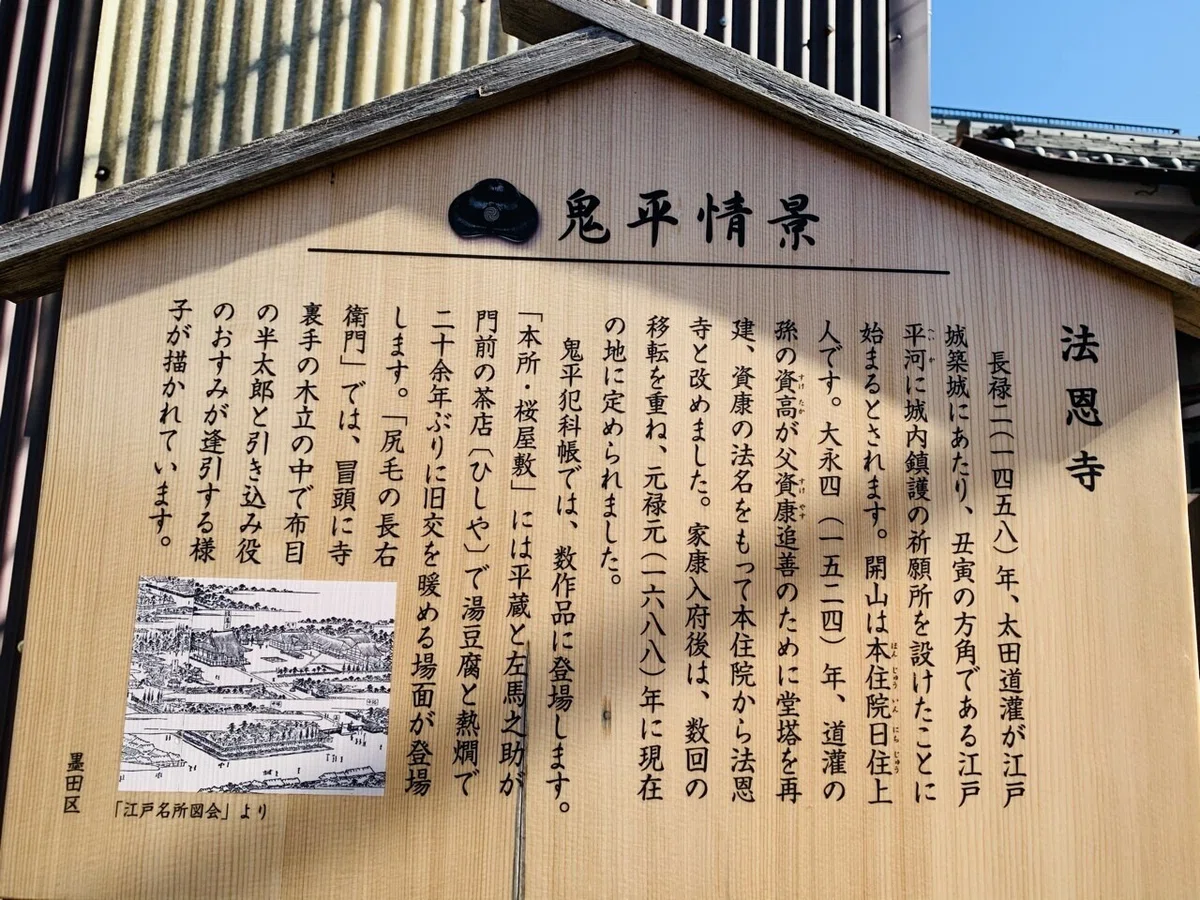 鬼平情景
法恩寺
長禄二(一四五八)年、太田道灌が江戸
城築城にあたり、丑寅の方角である江戸
平河に城内鎮護の祈願所を設けたことに
始まるとされます。開山は本住院日住上
人です。大永四(一五二四)年、道灌の
孫の資高が父資康追善のために堂塔を再
建、資康の法名をもって本住院から法恩
寺と改めました。家康入府後は、数回の
移転を重ね、元禄元(一六八八)年に現在
の地に定められました。
鬼平犯科帳では、数作品に登場します。
「本所・桜屋敷」には平蔵と左馬之助が
門前の茶店〔ひしや〕で湯豆腐と熱燗で
二十余年ぶりに旧交を暖める場面が登場
します。「尻毛の長右
衛門」では、冒頭に寺
裏手の木立の中で布目
の半太郎と引き込み役
のおすみが逢引する様
子が描かれています。
「江戸名所図会」より
墨田区